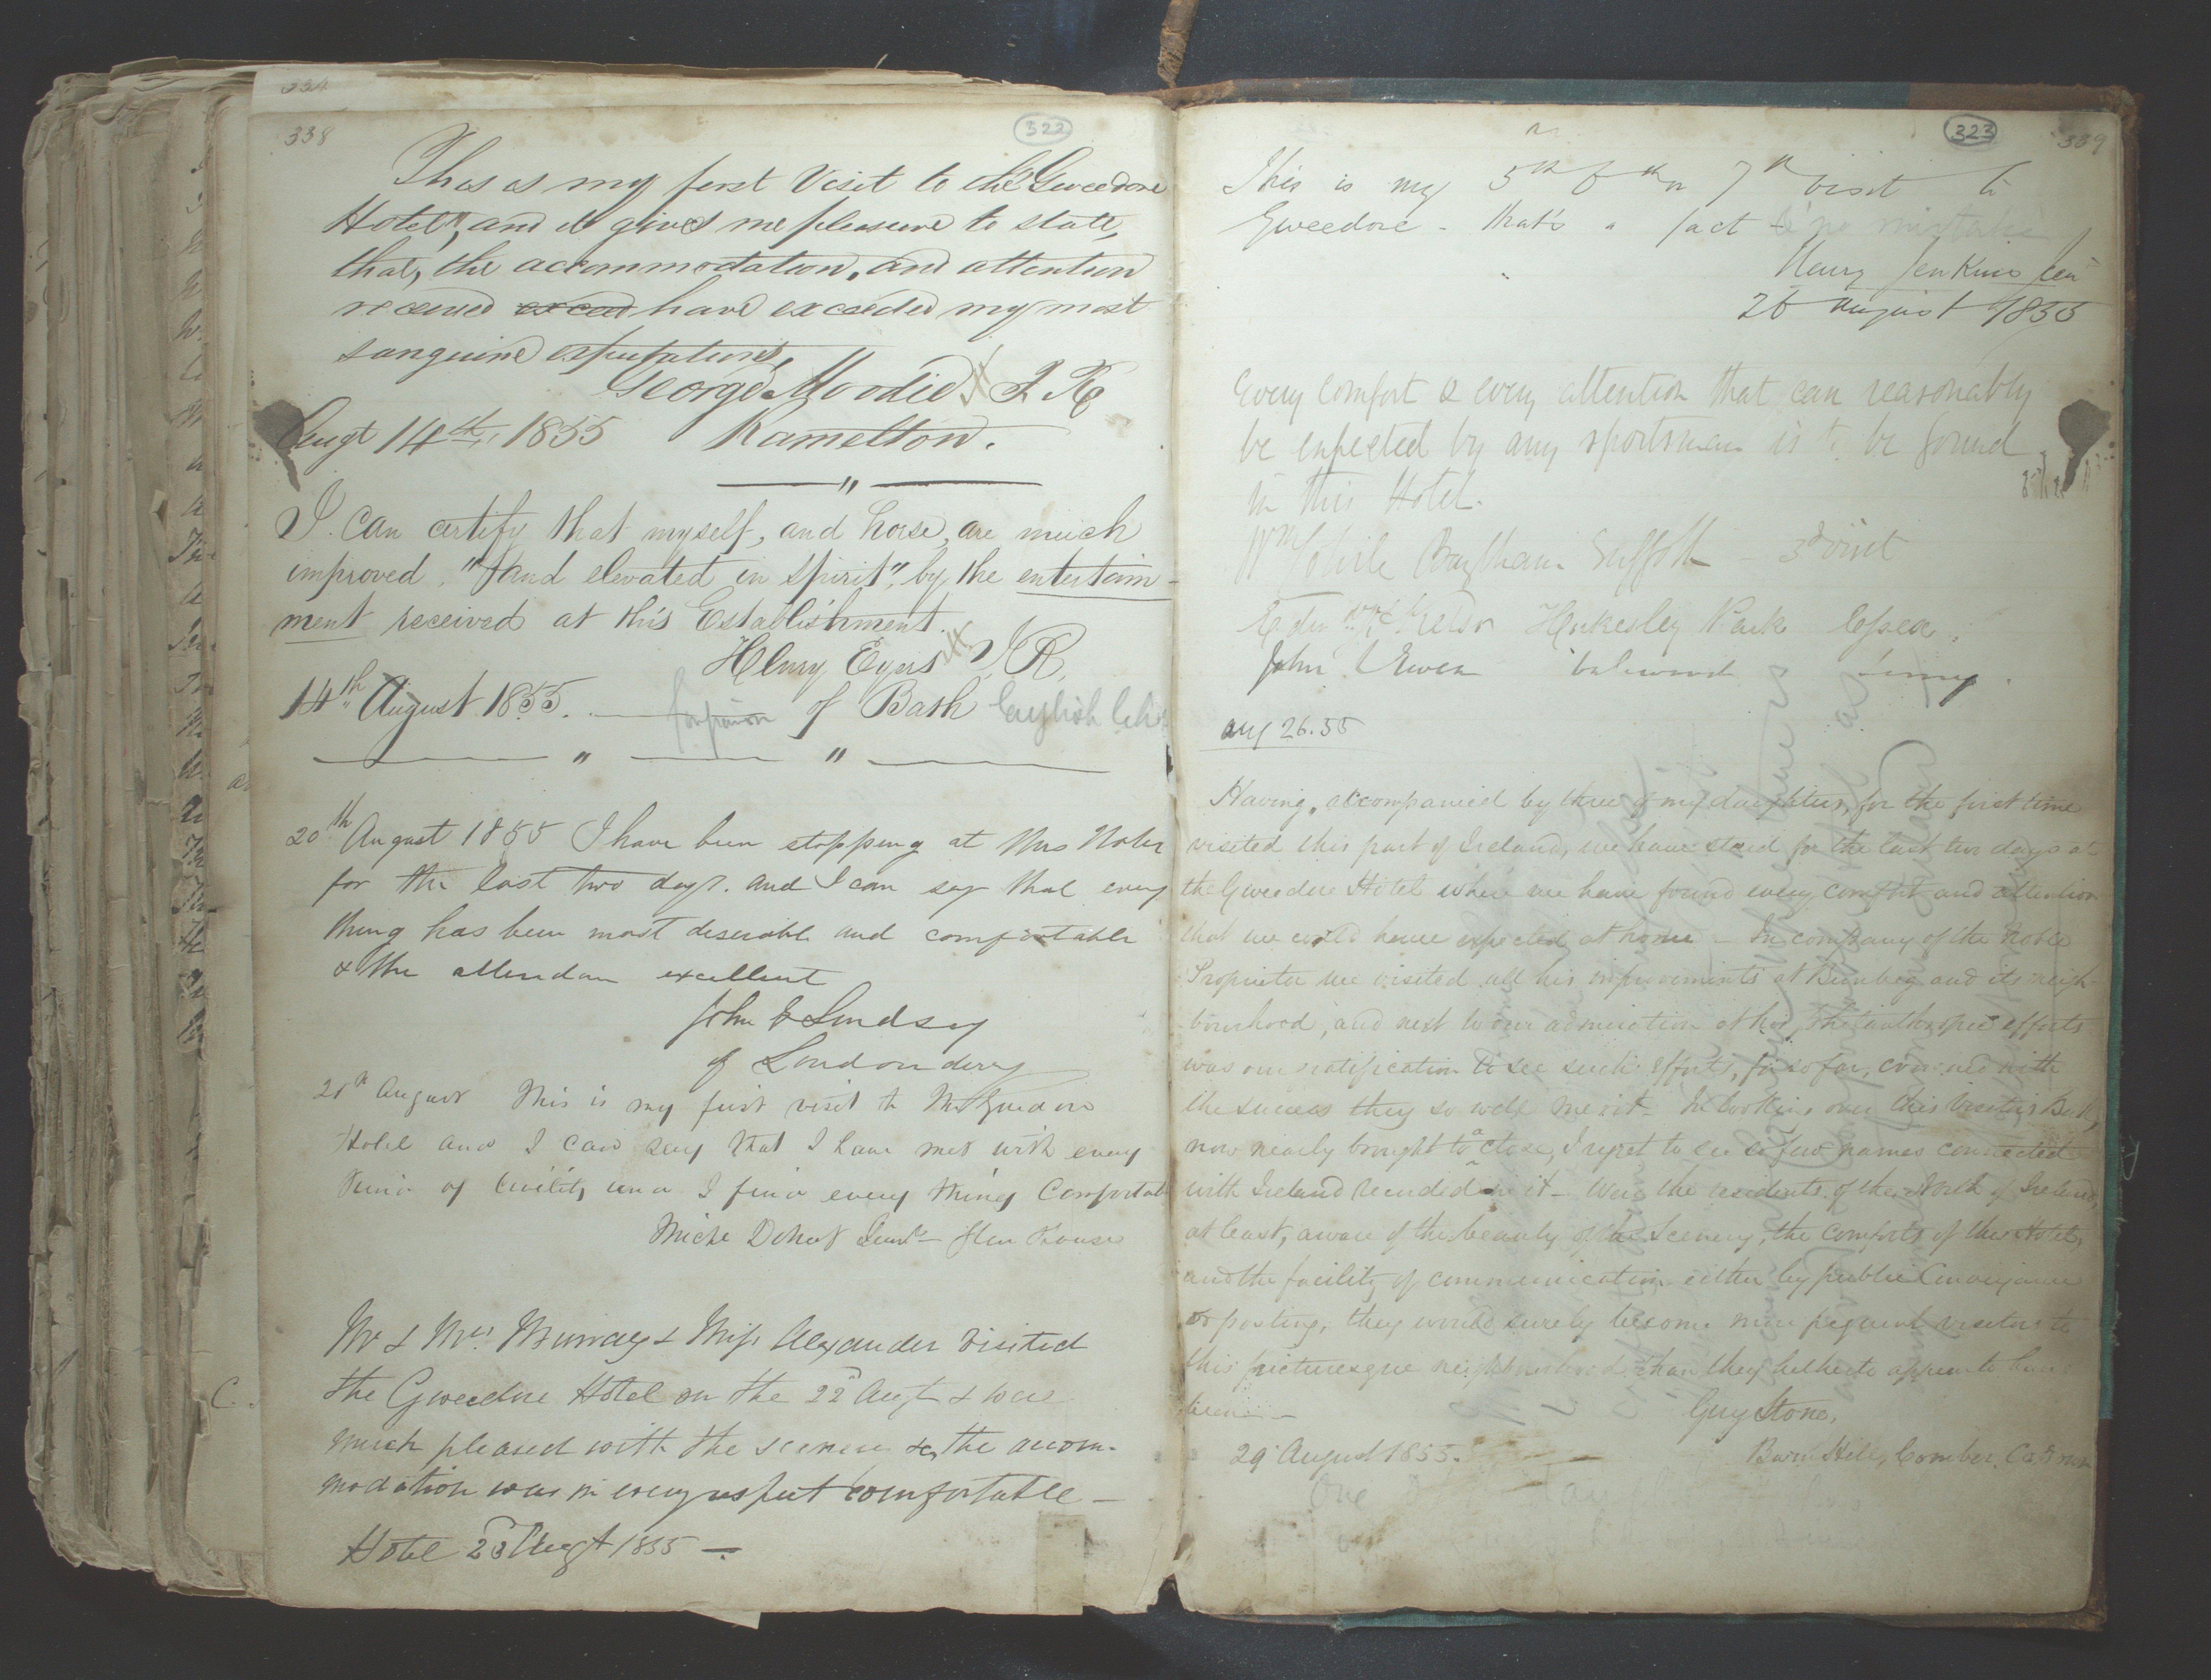 334
338
322
This is my first Visit to the Gweedore
Hotel, and it gives me pleasure to state,
that, the accommodation, and attention
received exceed have exceeded my most
sanguine expectations,
George Moodie
Augt 14th, 1855 Ramelton.
I can certify that myself, and horse, are much
improved, "and elevated in spirit", by the entertain-
ment received at this Establishment.
Henry
14th August 1855. of Bath English
20th August 1855 I have been stopping at
for the last two days. and I can say that every
thing has been most desirable and comfortable
& the excellent
John Lindsay
of Londonderry
August This is my first visit to the
Hotel and I can say that I have met with every
of Civility and I find every thing
Mr & Mrs Murray & Miss Alexander visited
the Gweedore Hotel on the 22d Augt & were
much pleased with the scenery & the accom-
modation was in every respect comfortable -
Hotel 23d Augt 1855 -
323
339
This is my 5th 6th or 7th visit to
Gweedore - that's a fact & no mistake
Henry Jenkins
26 August 1855
Every Comfort & every attention that can reasonably
be expected by any sportsman is to be found
in this Hotel.
Wm Suffolk 3d visit
Park Essex
John
Aug 26.55
Having, accompanied by three of my daughters, for the first time
visited this part of Ireland, we have staid for the last two days at
the Gweedore Hotel where we have found every comfort and attention
that we could have expected at home - In company of the noble
Proprietor we visited all his improvements at Bunbeg and its neigh-
bourhood, and next to our admiration of his philanthropic efforts
was our gratification to see such efforts, so far, crowned with
the success they so well merit - In looking over this Visitors Book,
now nearly brought to a close, I regret to see so few names connected
with Ireland recorded in it - Were the residents of the North of Ireland,
at least, aware of the beauty of the Scenery, the comforts of the Hotel,
and the facility of communication either by public Conveyance
or posting, they would surely become more frequent visitors to
this picturesque neighbourhood than they hitherto appear to have
been -
Guy Stone,
29 August 1855. Barn Hill, Comber, Co Down